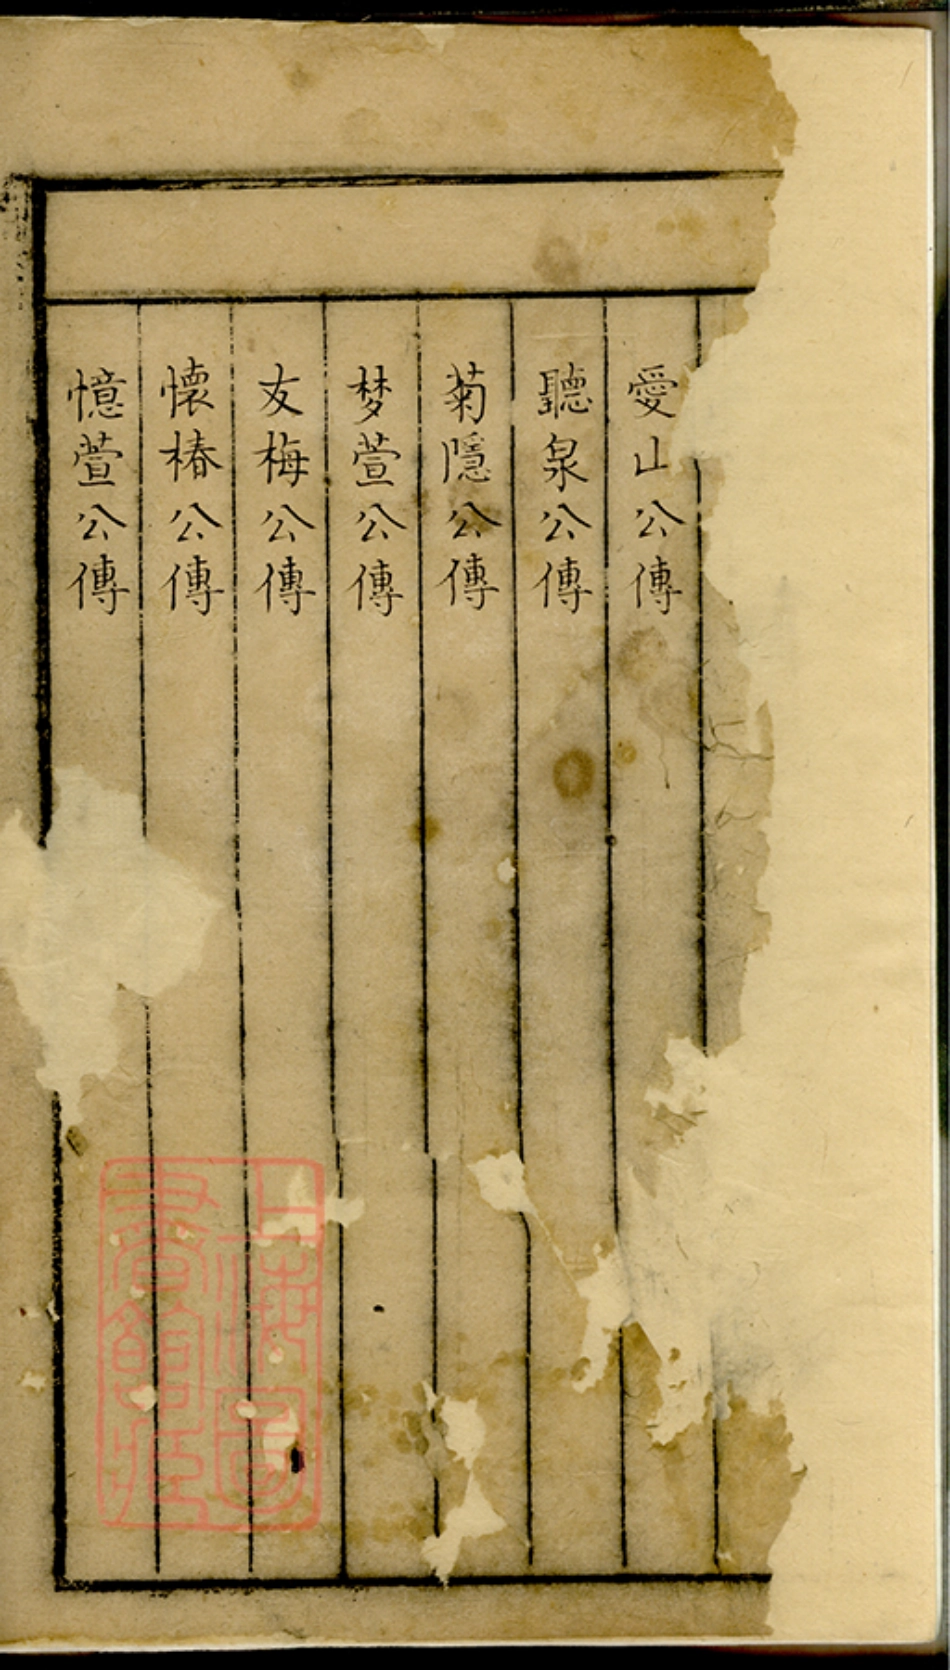 愛山公傳
聽泉公傳
菊隱公傳
梦萱公傳
友梅公傳
懷椿公傳
憶萱公傳
上海圖
書館藏